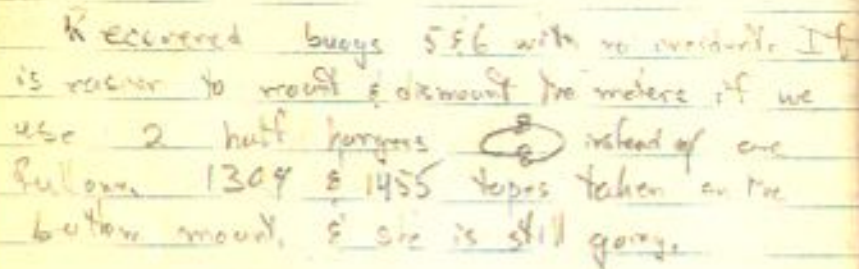 Recovered buoys 5 & 6 with no incident. It
is easier to mount & dismount the meters if we
use 2 half hangers instead of one
full one. 1309 & 1455 tapes taken on the
bottom mount, & she is still going.